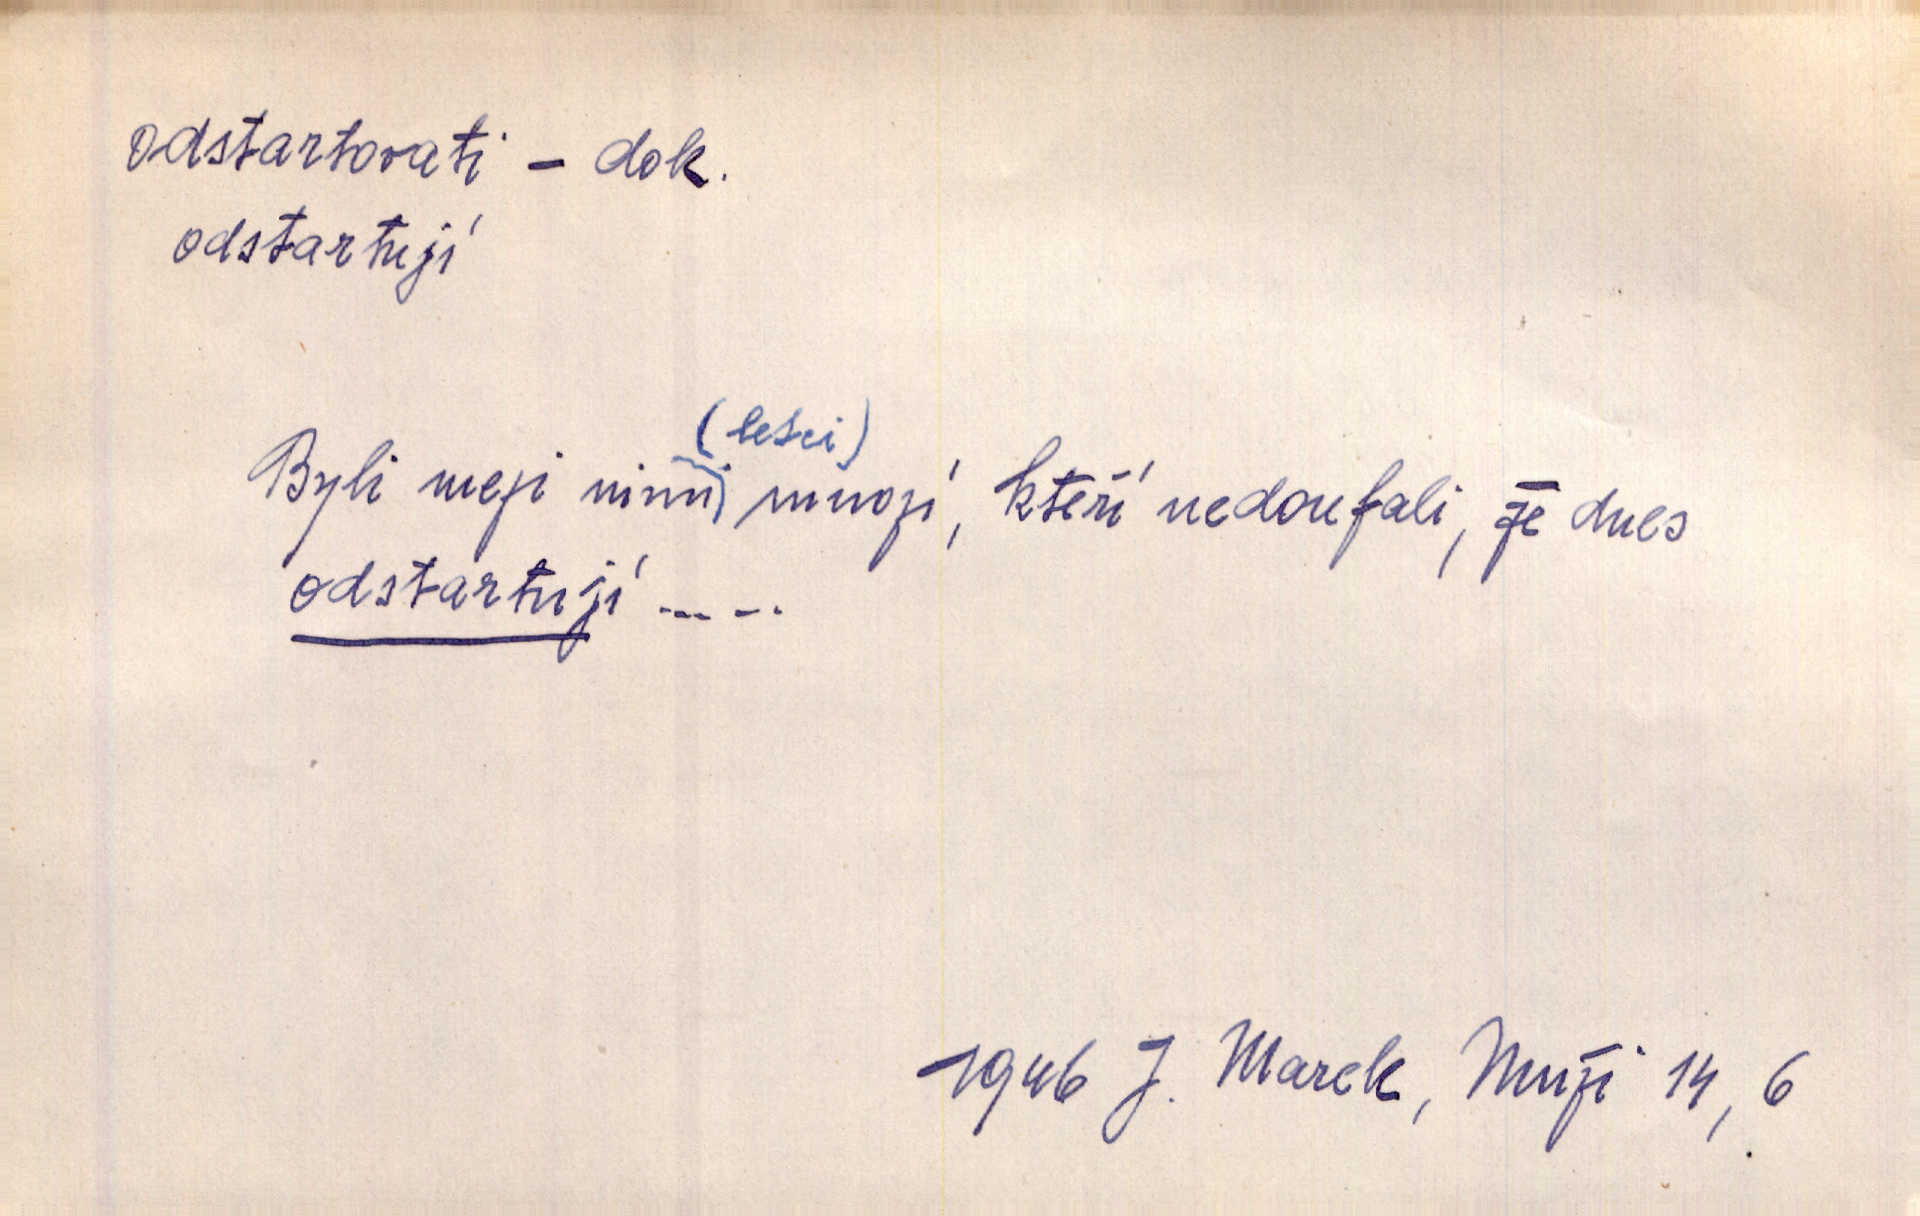 odstartovati – dok.
odstartují
(letci)
Byli mezi nimi mnozí, kteří nedoufali, že dnes
odstartují .....
1946 J. Marek, Muži 14, 6